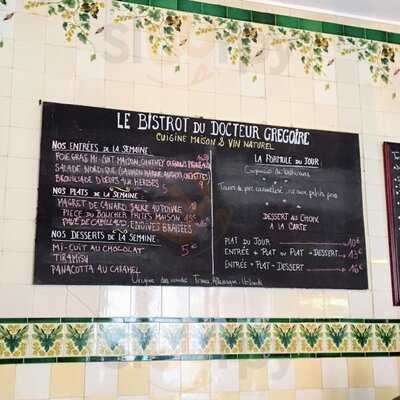 LE BISTROT DU DOCTEUR GREGOIRE
CUISINE MAISON & VIN NATUREL
NOS ENTRÉES DE LA SEMAINE
FOIE GRAS MI-CUIT MAISON, CHUTNEY
SALADE NORDIQUE (SAUMON MARINÉ, CREVETTES)
BROUILLADE D'ŒUFS AUX HERBES
NOS PLATS DE LA SEMAINE
MAGRET DE CANARD SAUCE AU POIVRE
PIÈCE DU BOUCHER FRITES MAISON
PAVÉ DE CABILLAUD, ENDIVES BRAISÉES
NOS DESSERTS DE LA SEMAINE
MI-CUIT AU CHOCOLAT 5€
TIRAMISU
PANACOTTA AU CARAMEL
LA FORMULE DU JOUR
DESSERT AU CHOIX
A LA CARTE
PLAT DU JOUR 10€
ENTRÉE + PLAT OU PLAT - DESSERT 13€
ENTRÉE + PLAT - DESSERT 16€
Origine des viandes : France,